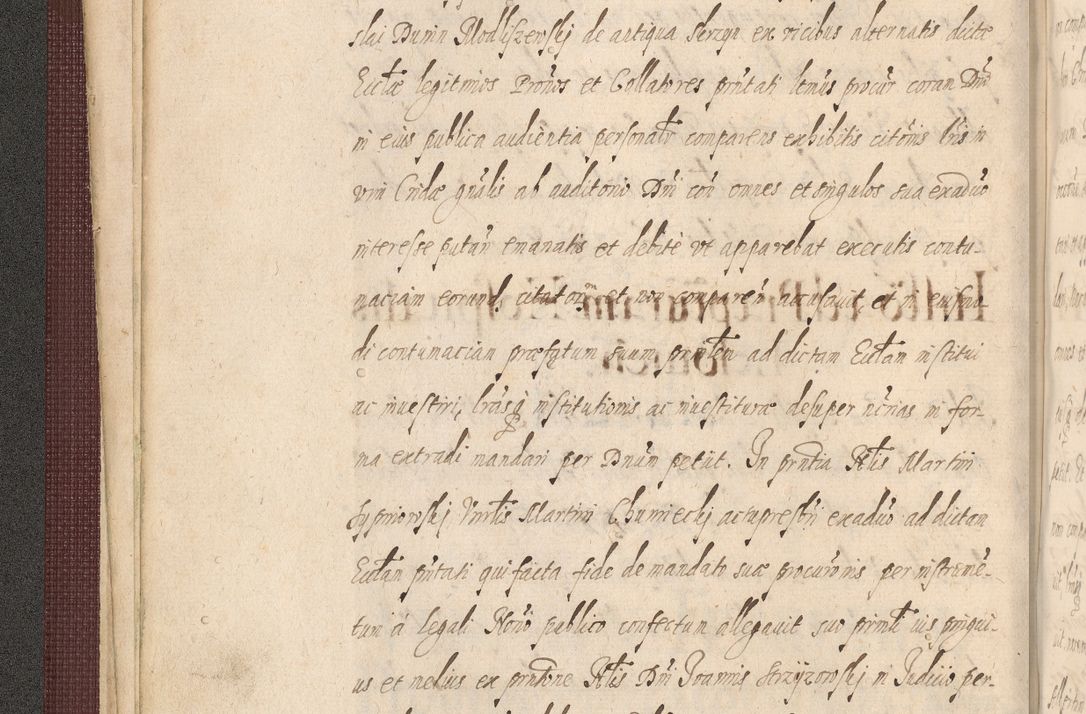 slai Dunin Modliszewskj de antiqua Skrzyn ex vicibus alternatis dictæ
Eccłæ legitimos Prőnos et Collatores pn̄tati ltmus procur coram Dn̄o
in eius publica audientia personalr comparens exhibitis citőnis lrīs in
vim Cridæ gn̄alis ab auditorio Dn̄i coñ omnes et singulos sua ex aduo
interesse putañ emanatis et debite vt apparebat executis contu-
maciam eorund, citatorum et non compareñ accusauit, et in eiusmo-
di contumaciam præfatum suum prnlem ad dictam Eccłam institui
ac inuestiri, lrasq̃ institutionis ac inuestituræ desuper ncrias in for-
ma extradi mandari per Dnum petiit. In prntia Nłis Martini
Sypniowskj Vnrłis Martini Chumieckj actu presbri ex aduo ad dictam
Eccłam pn̄tati qui facta fide de mandato suæ procurőnis per instrume-
tum à legali Noŕio publico confectum allegauit suo prinłi ius pinguí-
us et melius ex prntőne Nłis Dn̄i Joannis Strzyzowskj in Judicio per-